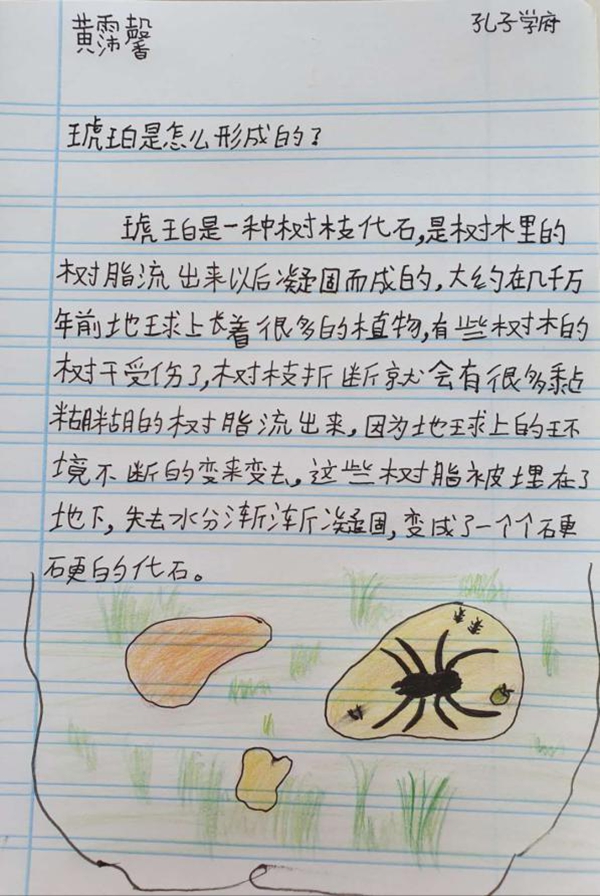 黄霈馨
孔子学府
琥珀是怎么形成的?
琥珀是一种树枝化石,是树木里的
树脂流出来以后凝固而成的,大约在几千万
年前地球上长着很多的植物,有些树木的
树干受伤了,树枝折断就会有很多黏
糊糊的树脂流出来,因为地球上的环
境不断的变来变去,这些树脂被埋在了
地下,失去水分渐渐凝固,变成了一个个硬
硬的化石。